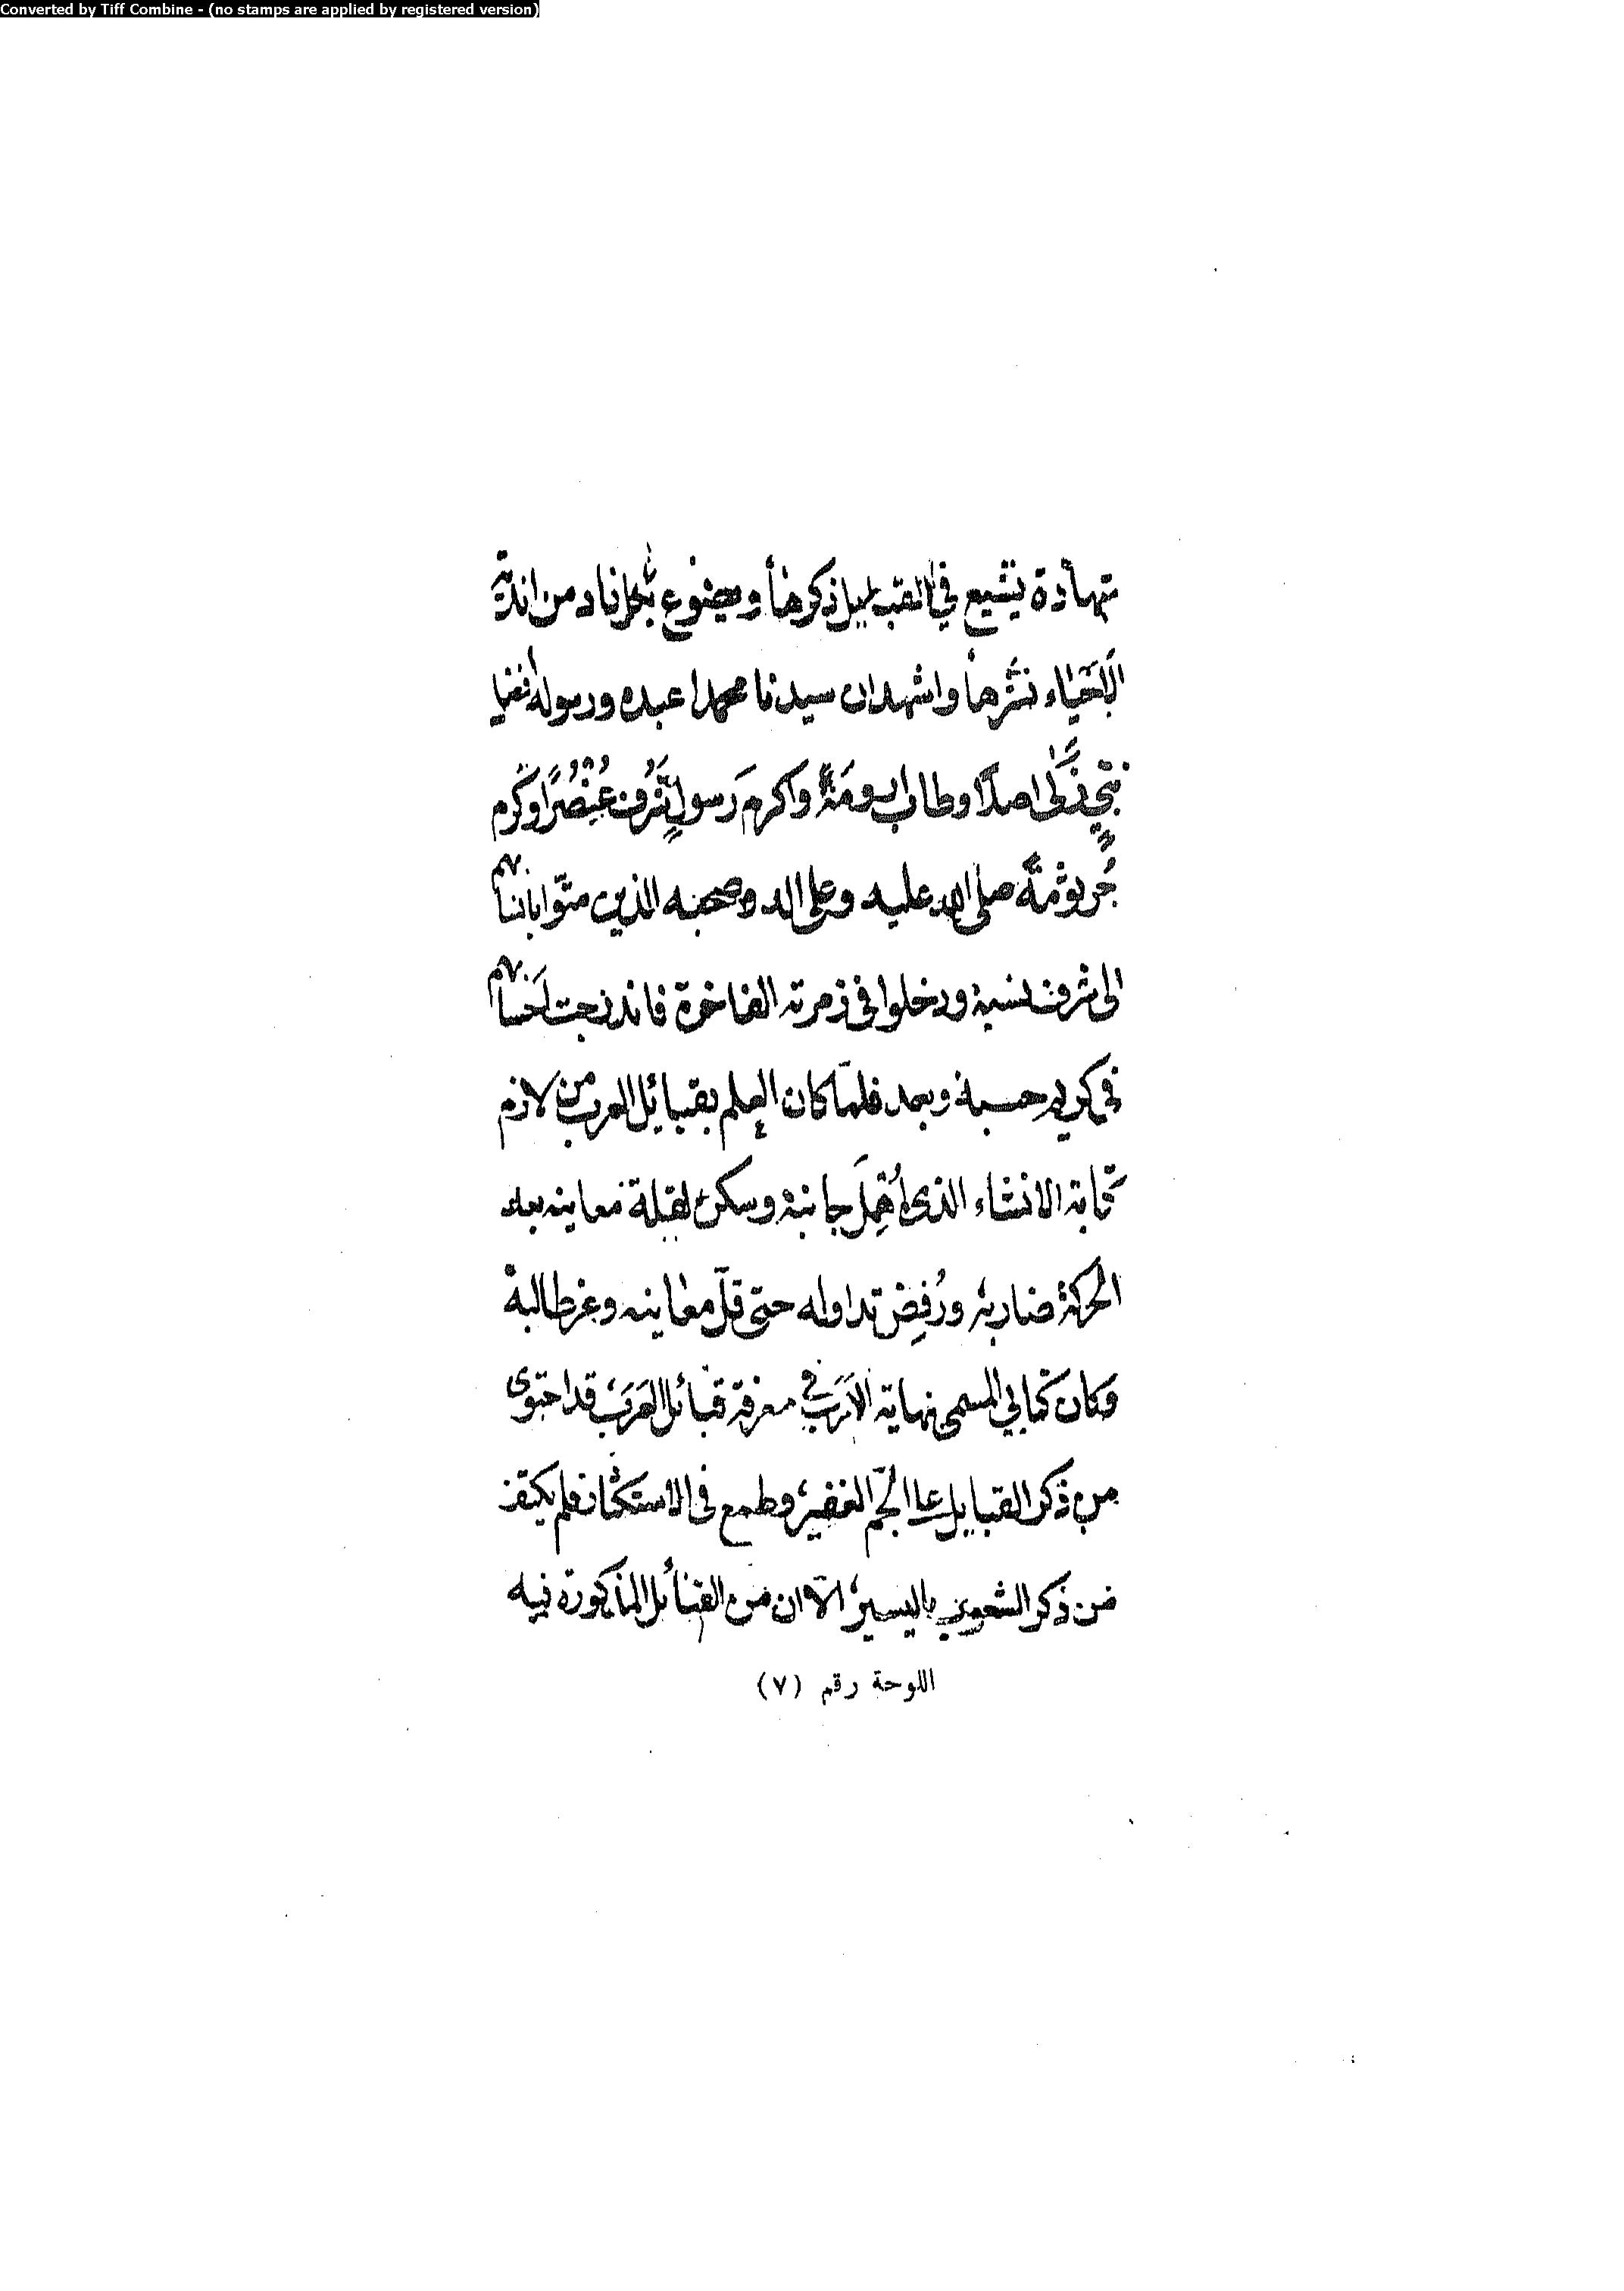 Converted by Tiff Combine - (no stamps are applied by registered version)
شهادة يشيع في القبايل ذكرها ويضوع بكل ناد من اندية
الاحياء نشرها واشهد ان سيدنا محمدا عبده ورسوله افضل
نبي زكى اصلا وطاب ارومة واكرم رسول شرف عنصرا وكرم
جرثومة صلى الله عليه وعلى اله وصحبه الذين متوا بانسابهم
الى شرف نسبه ودخلوا في زمرته الفاخرة فاندرجت احسابهم
في كريم حسبه وبعد فلما كان العلم بقبائل العرب من لازم
كتابة الانشاء الذي أُهمِل جانبه وسكن لقلة معاينه بعد
الحركة ضاربه ورُفِض تداوله حتى قلّ معاينه وعز طالبه
وكان كتابي المسمى نهاية الأَرَب في معرفة قبائل العَرَب قد احتوى
من ذكر القبايل على الجمّ الغفير وطمع في الاستكثار فلم يكتف
من ذكر الشعوب باليسير الا ان من القبائل المذكورة فيه
اللوحة رقم (٧)